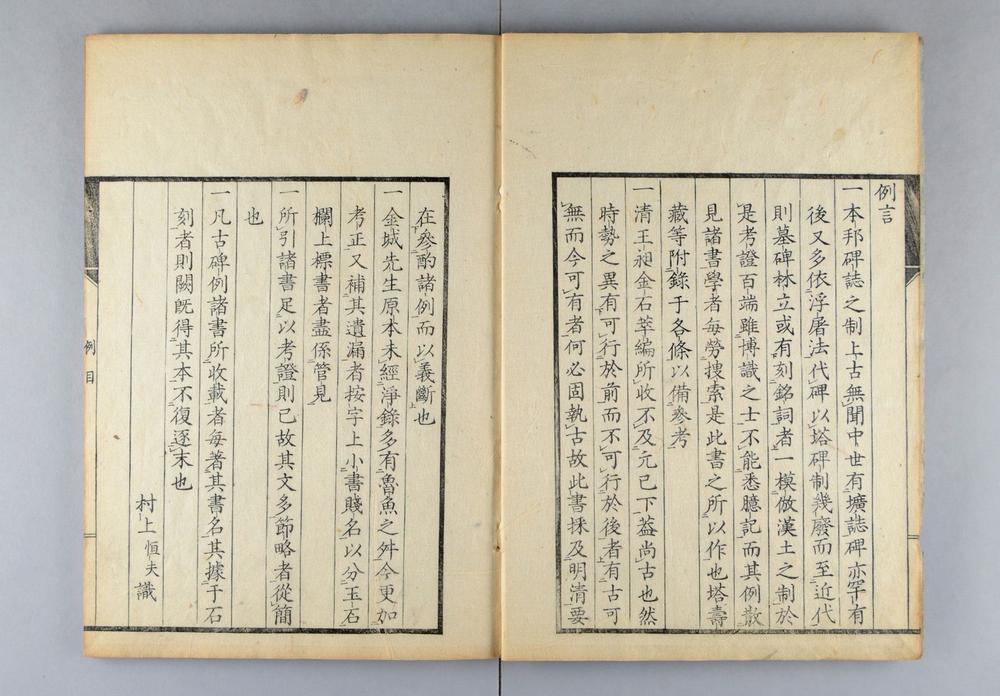 例言
一本邦碑誌之制上古無聞中世有壙誌碑亦罕有
後又多依浮屠法代碑以塔碑制幾廢而至近代
則墓碑林立或有刻銘詞者一模倣漢土之制於
是考證百端雖博識之士不能悉臆記而其例散
見諸書學者每勞搜索是此書之所以作也塔壽
藏等附錄于各條以備參考
一清王昶金石萃編所收不及元已下葢尚古也然
時勢之異有可行於前而不可行於後者有古可
無而今可有者何必固執古故此書採及明清要
在參酌諸例而以義斷也
一金城先生原本未經淨錄多有魯魚之舛今更加
考正又補其遺漏者按字上小書賤名以分玉石
欄上標書者盡係管見
一所引諸書足以考證則已故其文多節略者從簡
也
一凡古碑例諸書所收載者每著其書名其據于石
刻者則闕既得其本不復逐末也
村上恒夫識
例目